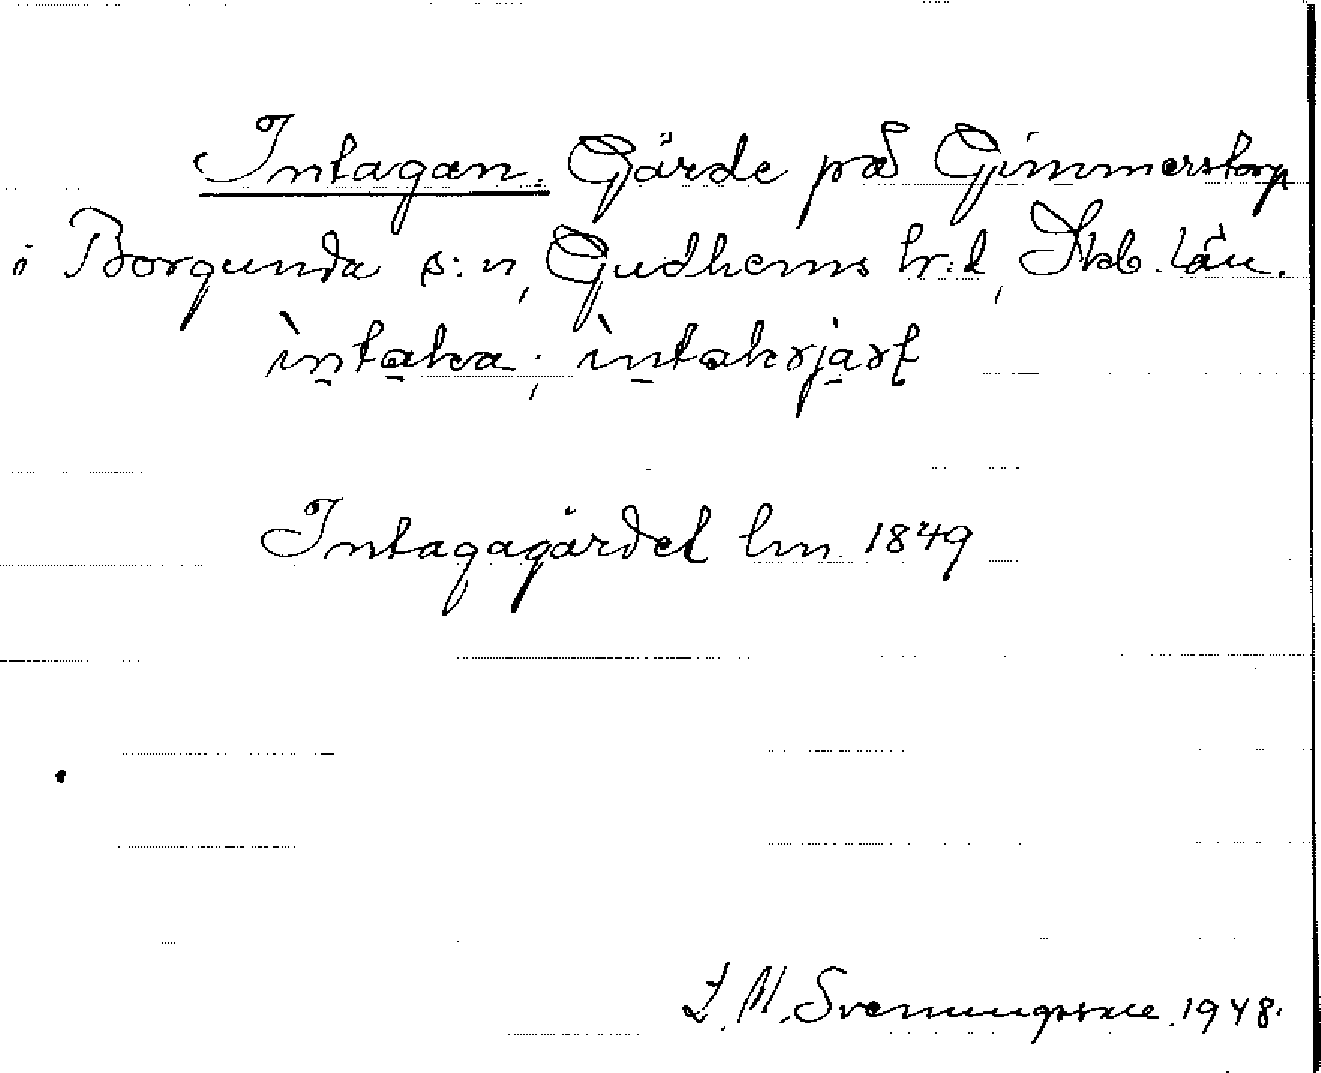 Intagan. Gärde på Gimmerstorp
i Borgunda s:n, Gudhems hr:d, Skb. län.
ìntaka; ìntakrjaʀt
Intagagärdet lm 1849
Svenungsson. 1948.